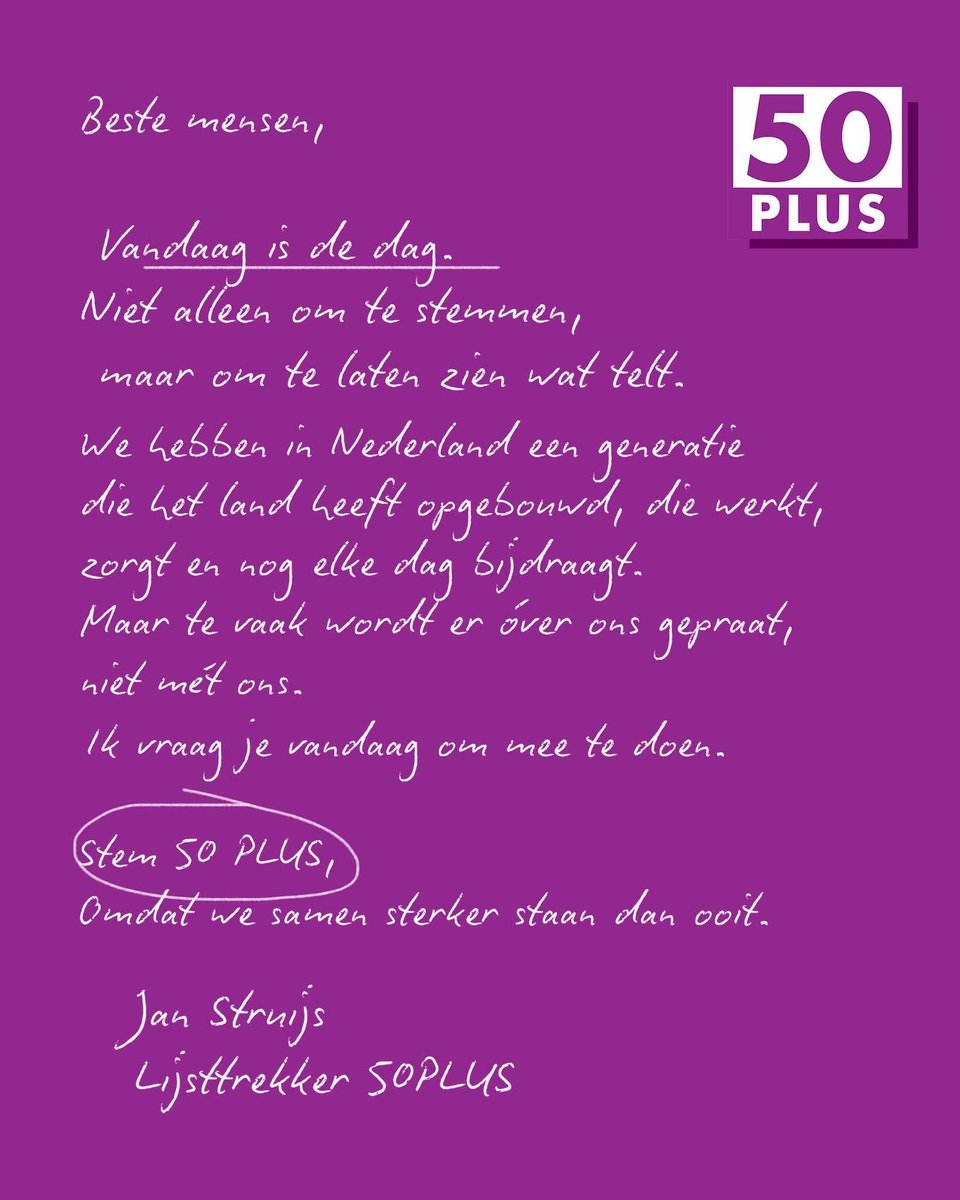 Beste mensen,
50
PLUS
Vandaag is de dag.
Niet alleen om te stemmen,
maar om te laten zien wat telt.
We hebben in Nederland een generatie
die het land heeft opgebouwd, die werkt,
zorgt en nog elke dag bijdraagt.
Maar te vaak wordt er óver ons gepraat,
niet mét ons.
Ik vraag je vandaag om mee te doen.
Stem 50 PLUS,
Omdat we samen sterker staan dan ooit.
Jan Struijs
Lijsttrekker 50PLUS